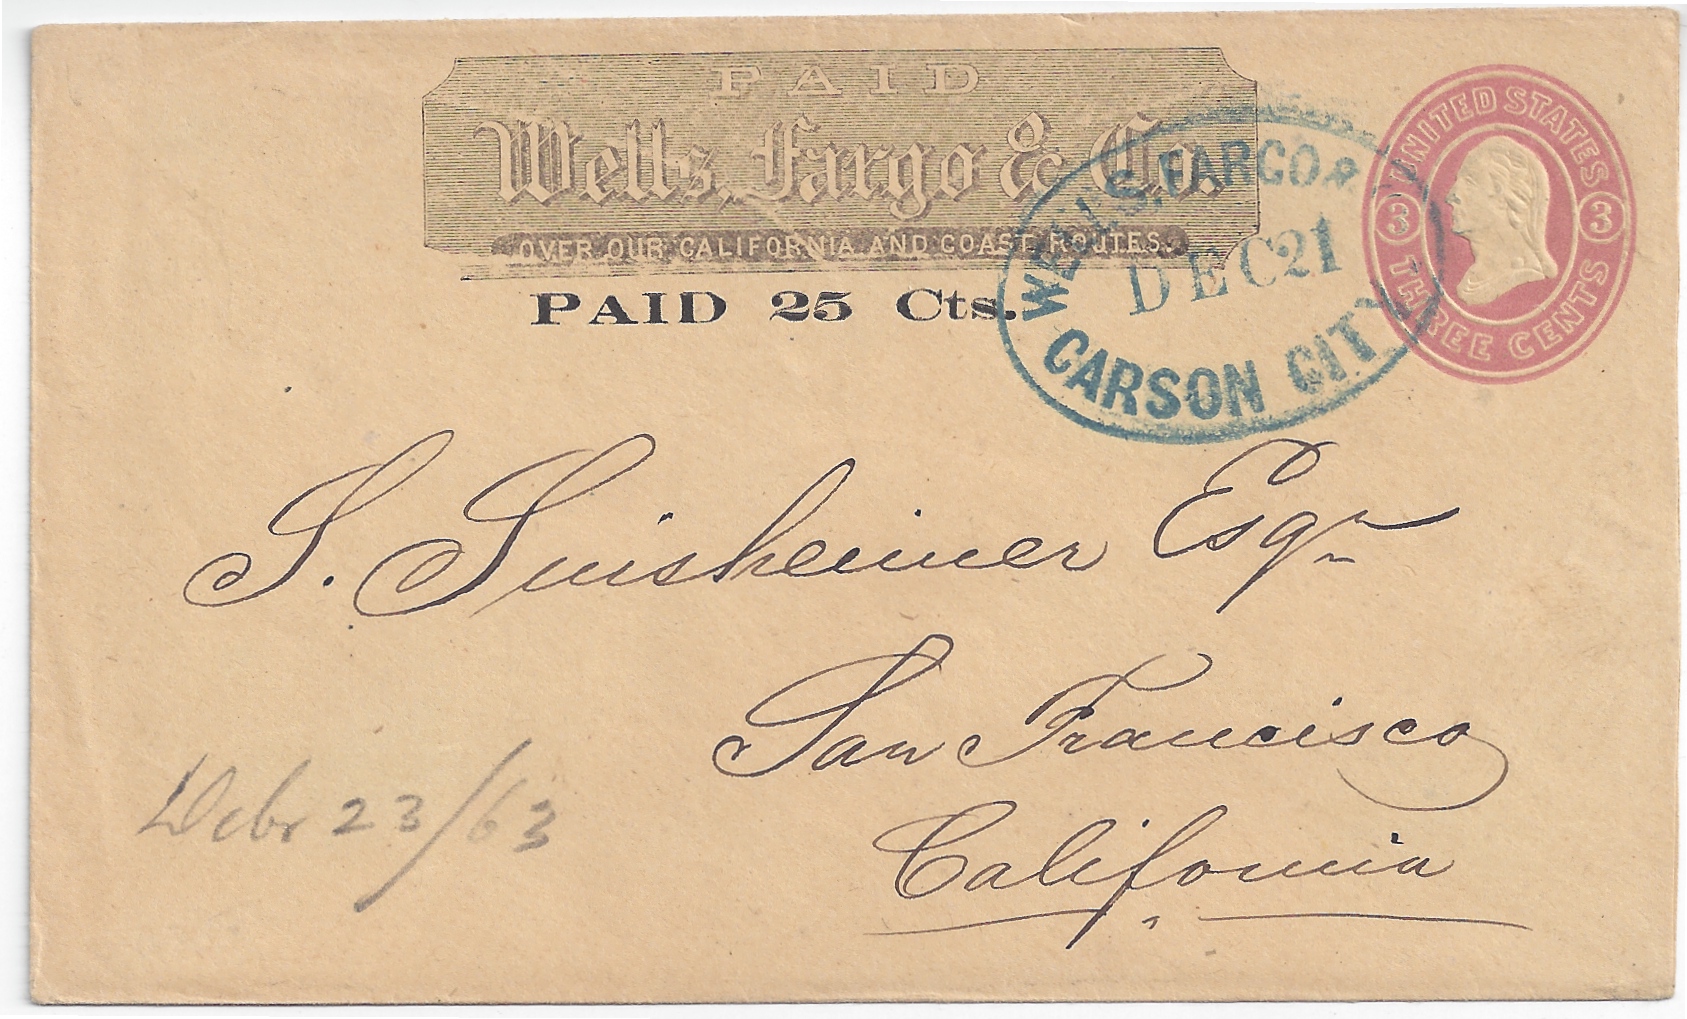 PAID
Wells, Fargo & Co.
OVER OUR CALIFORNIA AND COAST ROUTES.
PAID 25 Cts.
WELLS, FARGO &
DEC 21
CARSON CITY
UNITED STATES
3 3
THREE CENTS
S. Suisheimer Esqr
San Francisco
California
Debr 23/63